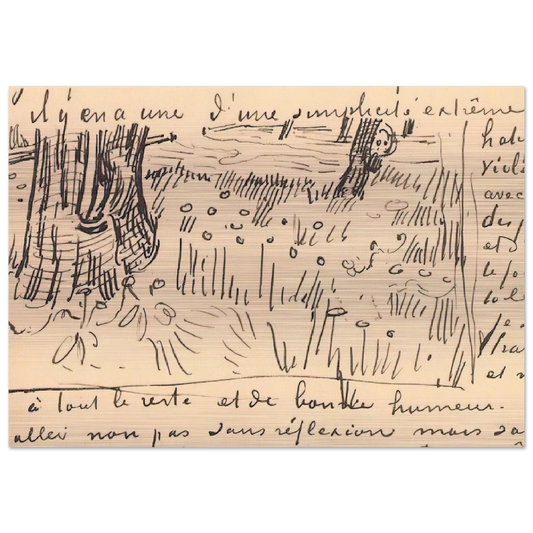 il y en a une d'une simplicité extrême
viol
avec
des p
et d
et
à tout le reste et de bonne humeur.
aller non pas sans réflexion mais sa